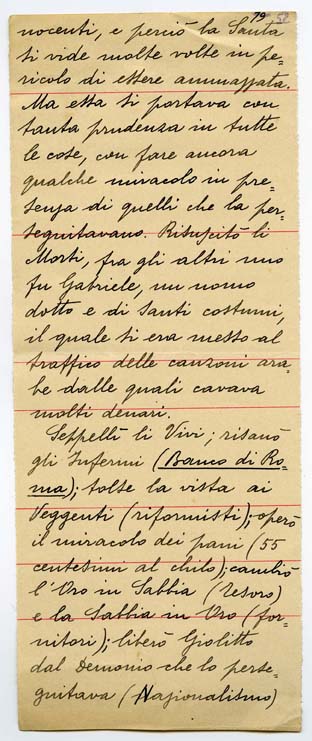 79 52
nocenti, e perciò la Santa
si vide molte volte in pe=
ricolo di essere ammazzata.
Ma essa si portava con
tanta prudenza in tutte
le cose, con fare ancora
qualche miracolo in pre=
senza di quelli che la per=
seguitavano. Risuscitò li
Morti, fra gli altri uno
fu Gabriele, un uomo
dotto e di santi costumi,
il quale si era messo al
traffico delle canzoni ara=
be dalle quali cavava
molti denari.
Seppellì li Vivi; risanò
gli Infermi (Banco di Ro=
ma); tolse la vista ai
Veggenti (riformisti); operò
il miracolo dei pani (55
centesimi al chilo); cambiò
l'Oro in Sabbia (Tesoro)
e la Sabbia in Oro (for=
nitori); liberò Giolitto
dal Demonio che lo perse=
guitava (Nazionalismo)